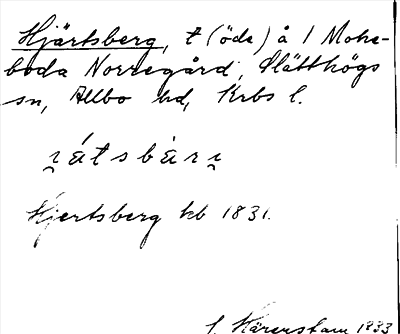 Hjärtsberg, t (öde) å 1 Mohe-
boda Norregård, Slätthögs
sn, Allbo hd, Krbs l.
Hjertsberg kb 1831.
1933